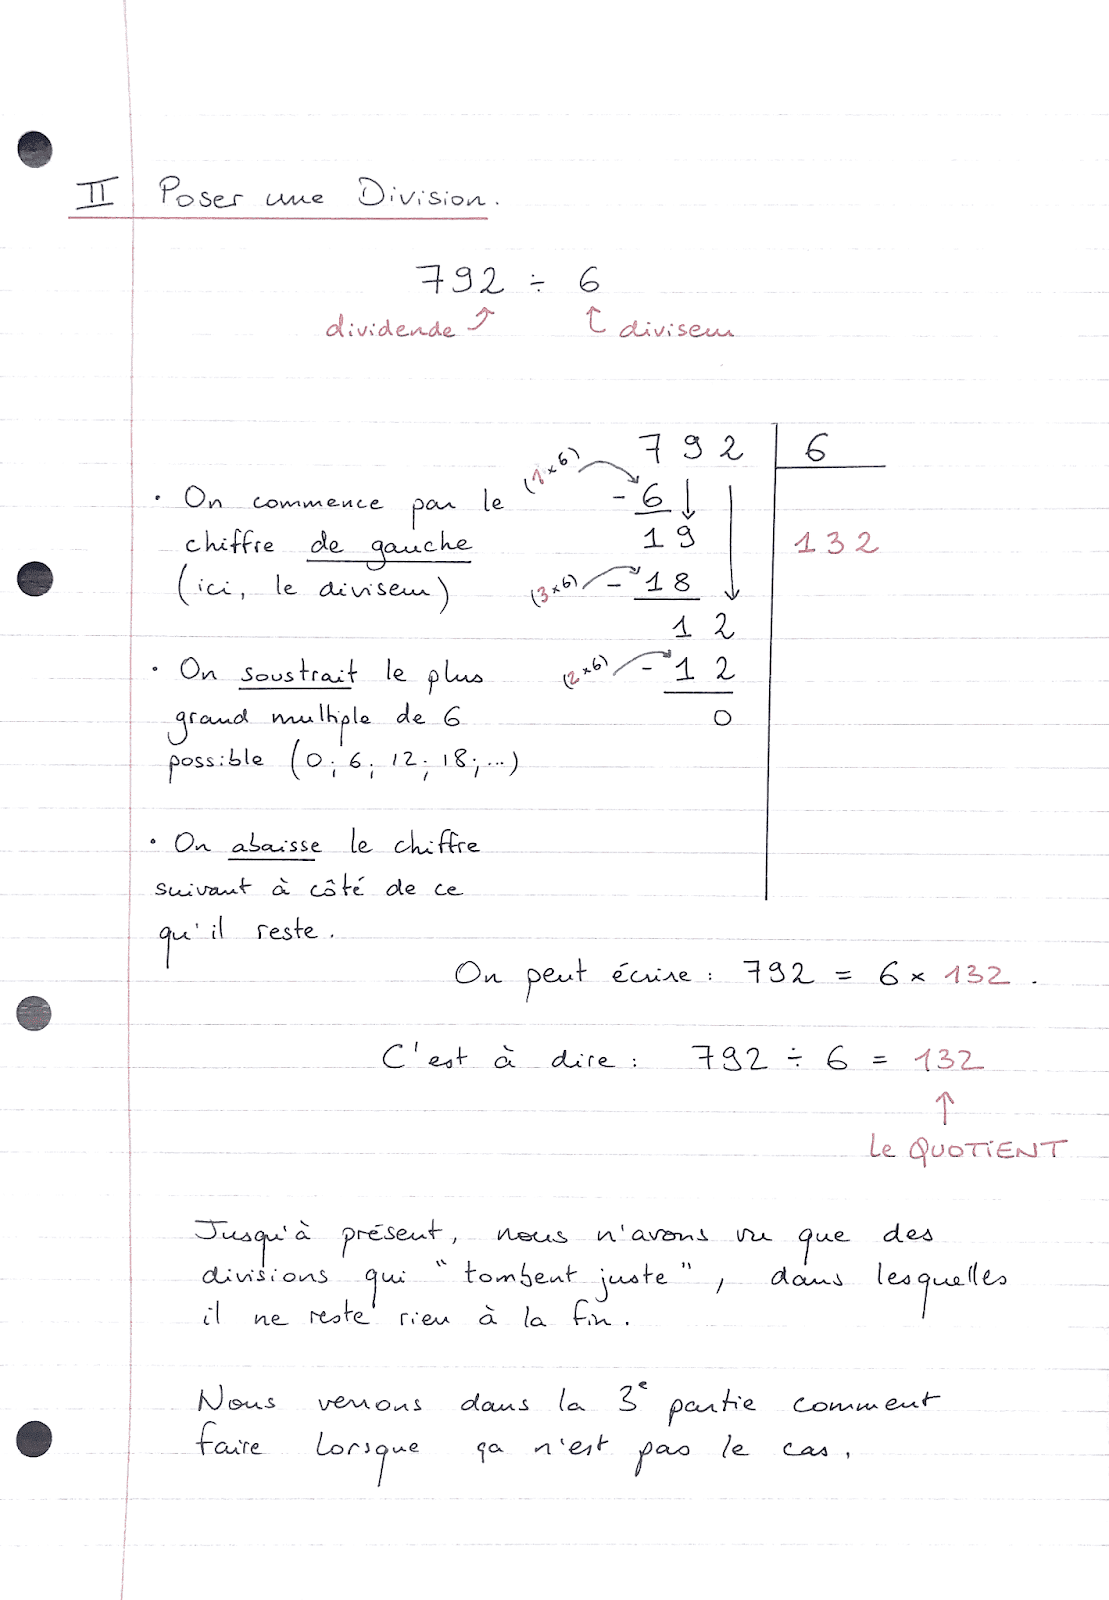 II Poser une Division.
792 ÷ 6
dividende ↑ ↑ diviseur
7 9 2 | 6
(1×6) - 6
• On commence par le
chiffre de gauche
(ici, le diviseur)
1 9
1 3 2
(3×6) - 1 8
1 2
• On soustrait le plus
grand multiple de 6
possible (0; 6; 12; 18; ...)
(2×6) - 1 2
0
• On abaisse le chiffre
suivant à côté de ce
qu'il reste.
On peut écrire : 792 = 6 × 132 .
C'est à dire : 792 ÷ 6 = 132
↑
le QUOTIENT
Jusqu'à présent, nous n'avons vu que des
divisions qui "tombent juste", dans lesquelles
il ne reste rien à la fin.
Nous verrons dans la 3e partie comment
faire lorsque ça n'est pas le cas.